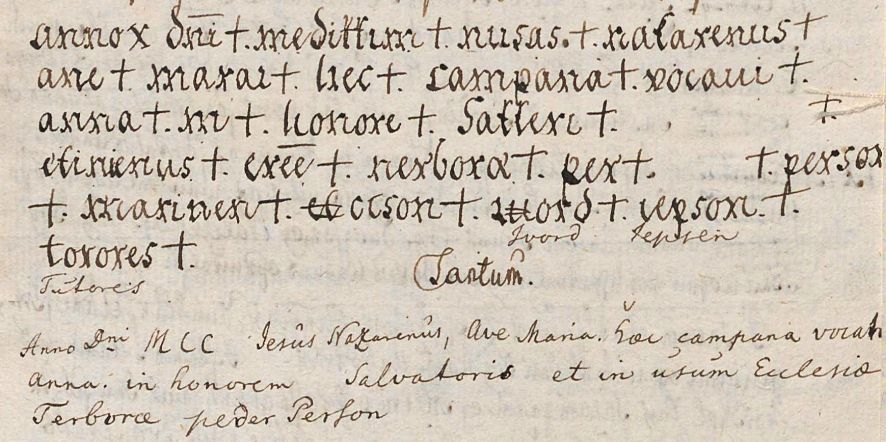 annox dn̄i †. medittim †. nusas. †. nasarenus †
ane †. maraı †. hec †. campana †. vocaui †.
anna †. ın †. honore †. Satleri †. †.
etinenus †. exēē †. nerboræ †. per †. †. person
†. marinen †. ccson †. uord †. ıepson. †.
Jvord Jepsen
torores †. Tantum̃.
Tutores
Anno Dni MCC Jesus Nazarenus, Ave Maria. Hæc campana vocat
Anna. in honorem Salvatoris et in usum Ecclesiæ
Terboræ peder Person